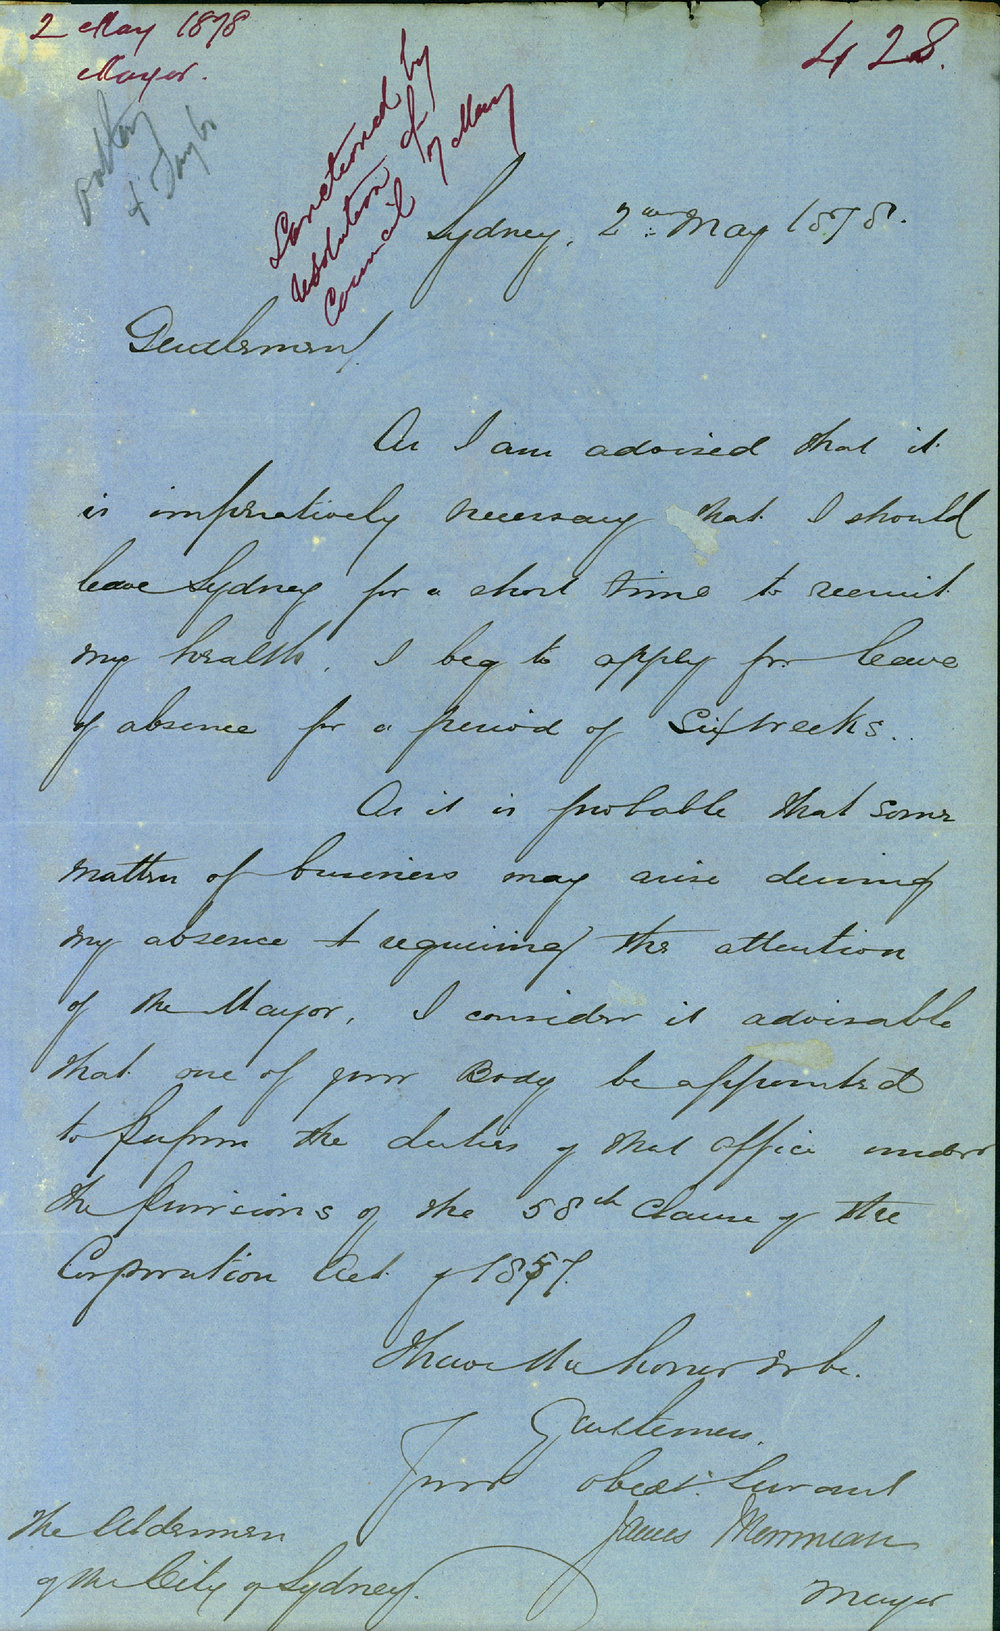 2 May 1878
Mayor.
428.
Sanctioned by
resolution of
Council 7 May
Sydney, 2nd May 1878.
Gentlemen,
As I am advised that it
is imperatively necessary that I should
leave Sydney for a short time to recruit
my health, I beg to apply for leave
of absence for a period of Six weeks.
As it is probable that some
matter of business may arise during
my absence & requiring the attention
of the Mayor, I consider it advisable
that one of your Body be appointed
to perform the duties of that office under
the provisions of the 58th Clause of the
Corporation Act of 1857.
I have the honor to be.
Gentlemen.
Your obedt. Servant
James Merriman
Mayor
The Aldermen
of the City of Sydney.